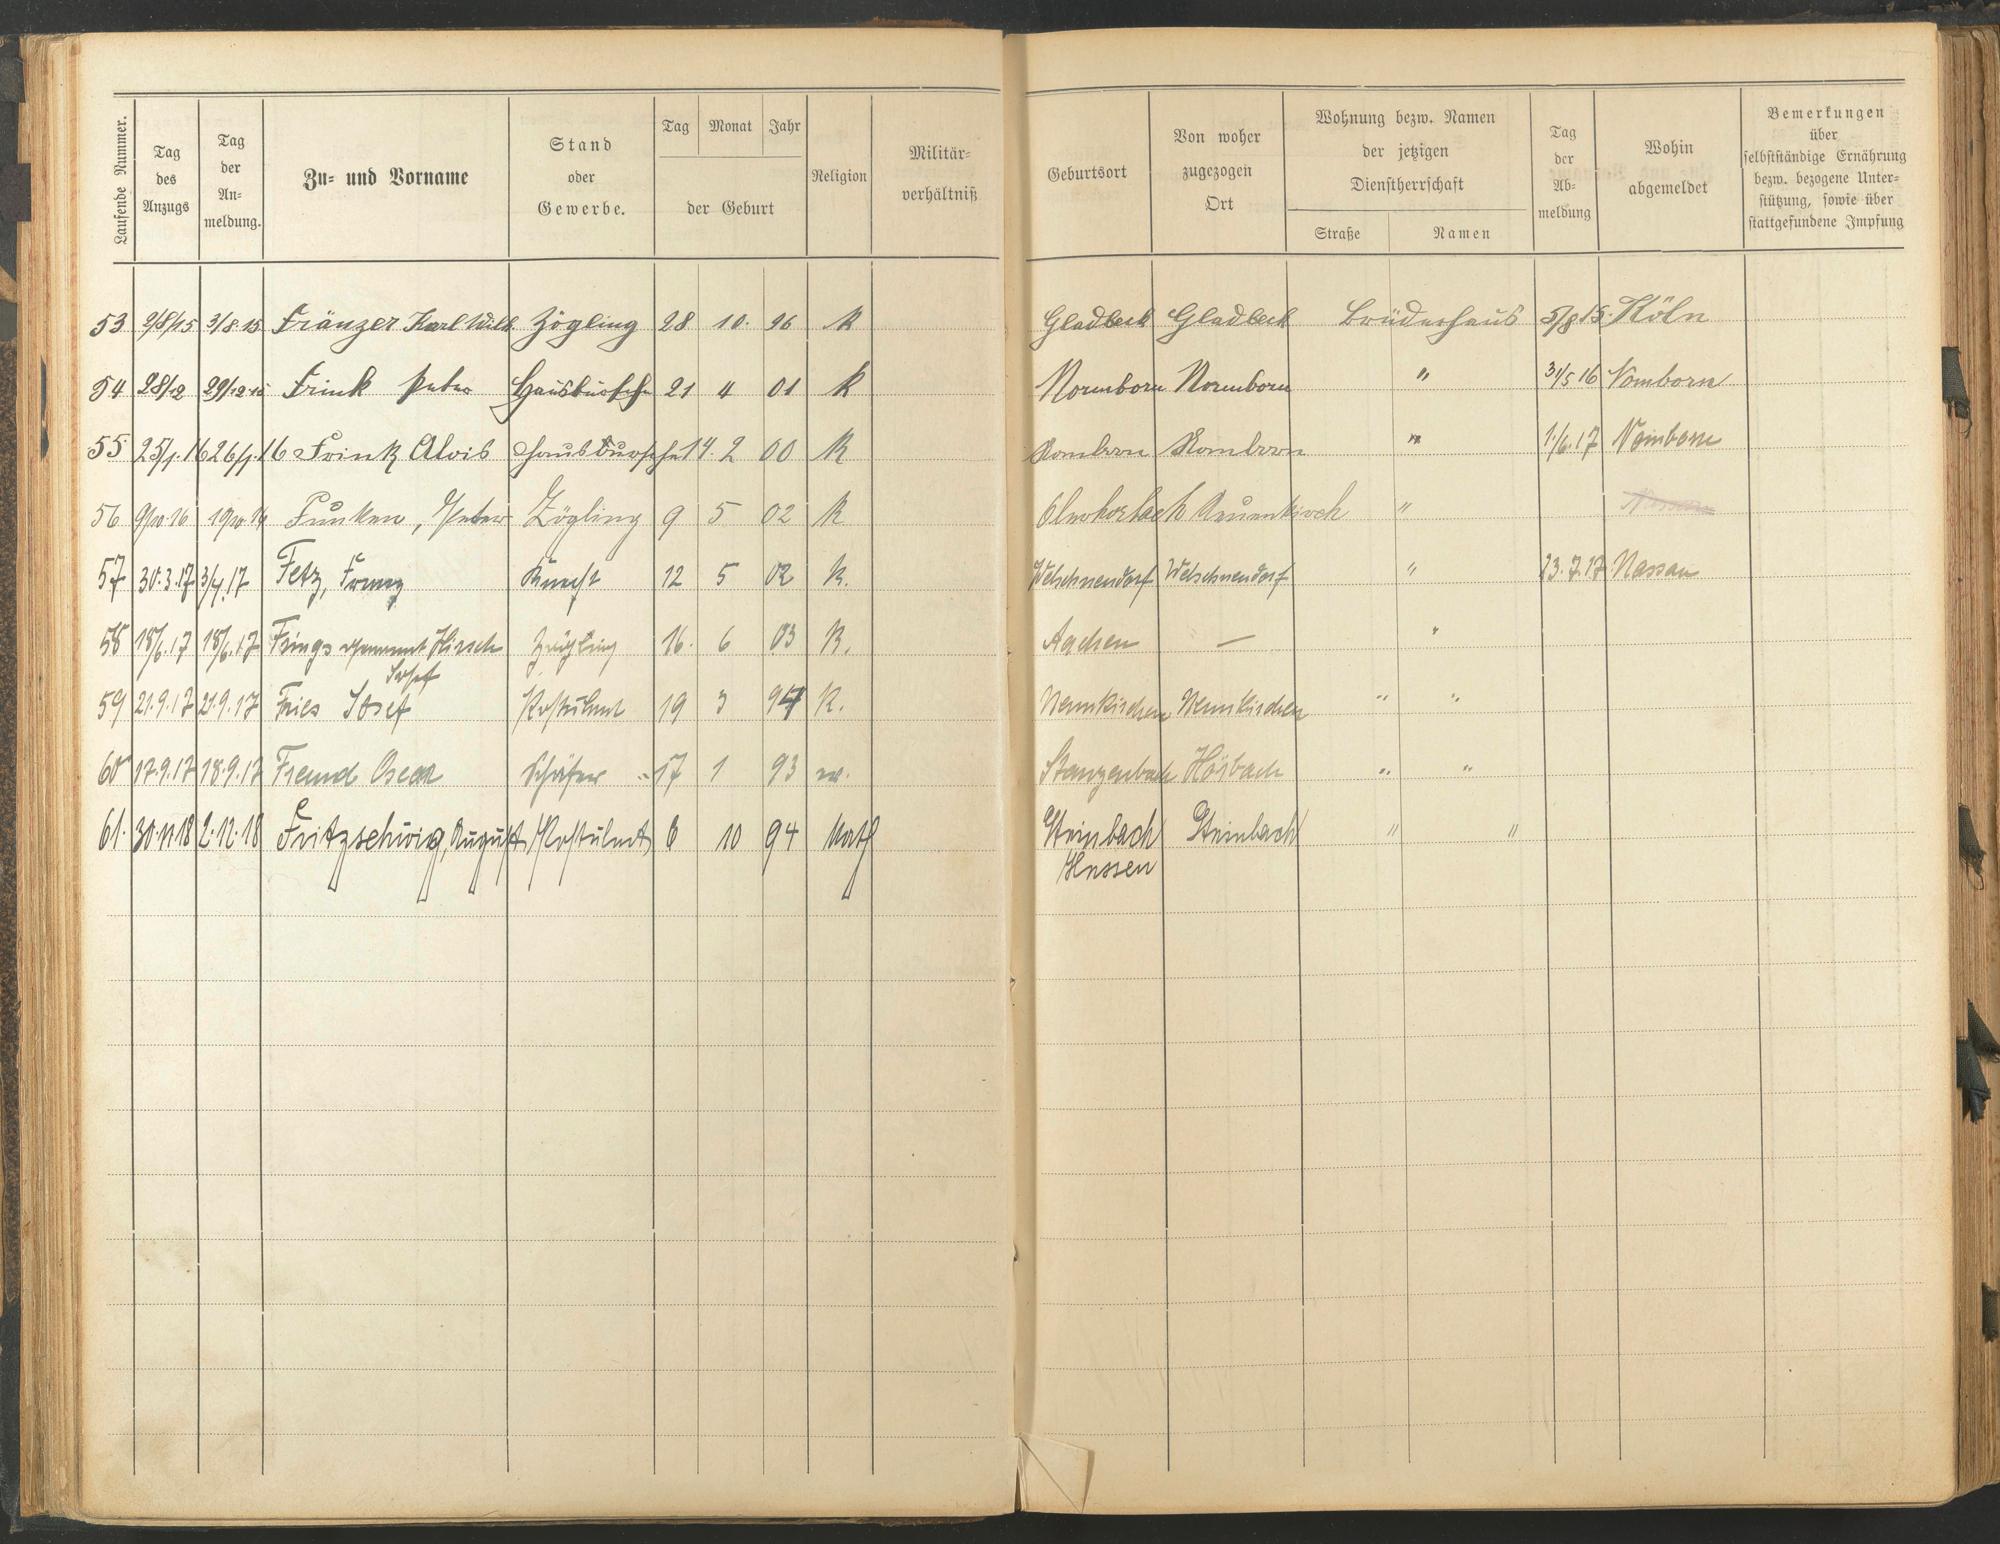 Laufende Nummer.
Tag des Anzugs
Tag der An-meldung.
Zu- und Vorname
Stand oder Gewerbe.
Tag Monat Jahr
der Geburt
Religion
Militär-verhältniß
Geburtsort
Von woher zugezogen Ort
Wohnung bezw. Namen der jetzigen Dienstherrschaft
Straße Namen
Tag der Ab-meldung
Wohin abgemeldet
Bemerkungen über selbstständige Ernährung bezw. bezogene Unter-stützung, sowie über stattgefundene Impfung
53 2/8/15 3/8 15 Fränzer Karl Wilh. Zögling 28 10. 96 K Gladbeck Gladbeck Brüderhaus 5/8 15. Köln
54 28/12 29/12 15 Frink Peter Hausbursche 21 4 01 K Nomborn Nomborn " 31/5 16 Nomborn
55 25/1.16 26/1.16 Frink Alois Hausbursche 14. 2 00 K Nomborn Nomborn " 1/6.17 Nomborn
56 9/10.16 19/10.16 Funken, Peter Zögling 9 5 02 K Neuenkirch " Nassau
57 30.3.17 3/4.17 Fetz, Franz Knecht 12 5 02 K. Welschneudorf Welschneudorf " 23.7.17 Nassau
58 18/6.17 18/6.17 Frings genannt Hirsch Josef Zögling 16. 6 03 K. Aachen — "
59 21.9.17 21.9.17 Fries Josef Postulant 19 3 94 K. Neunkirchen Neunkirchen " "
60 17.9.17 18.9.17 Freund Oscar Schäfer 17 1 93 Stangenbach Hösbach " "
61. 30.11.18 2.12.18 Fritzschwig, August Postulant 6 10 94 Kath Steinbach Hessen Steinbach " "